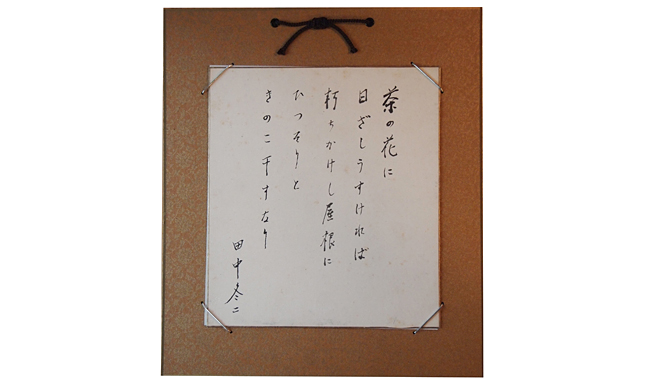 茶の花に
日ざしうすければ
傾ちかけし屋根に
ひつそりと
きのこ干すなり
田中冬二